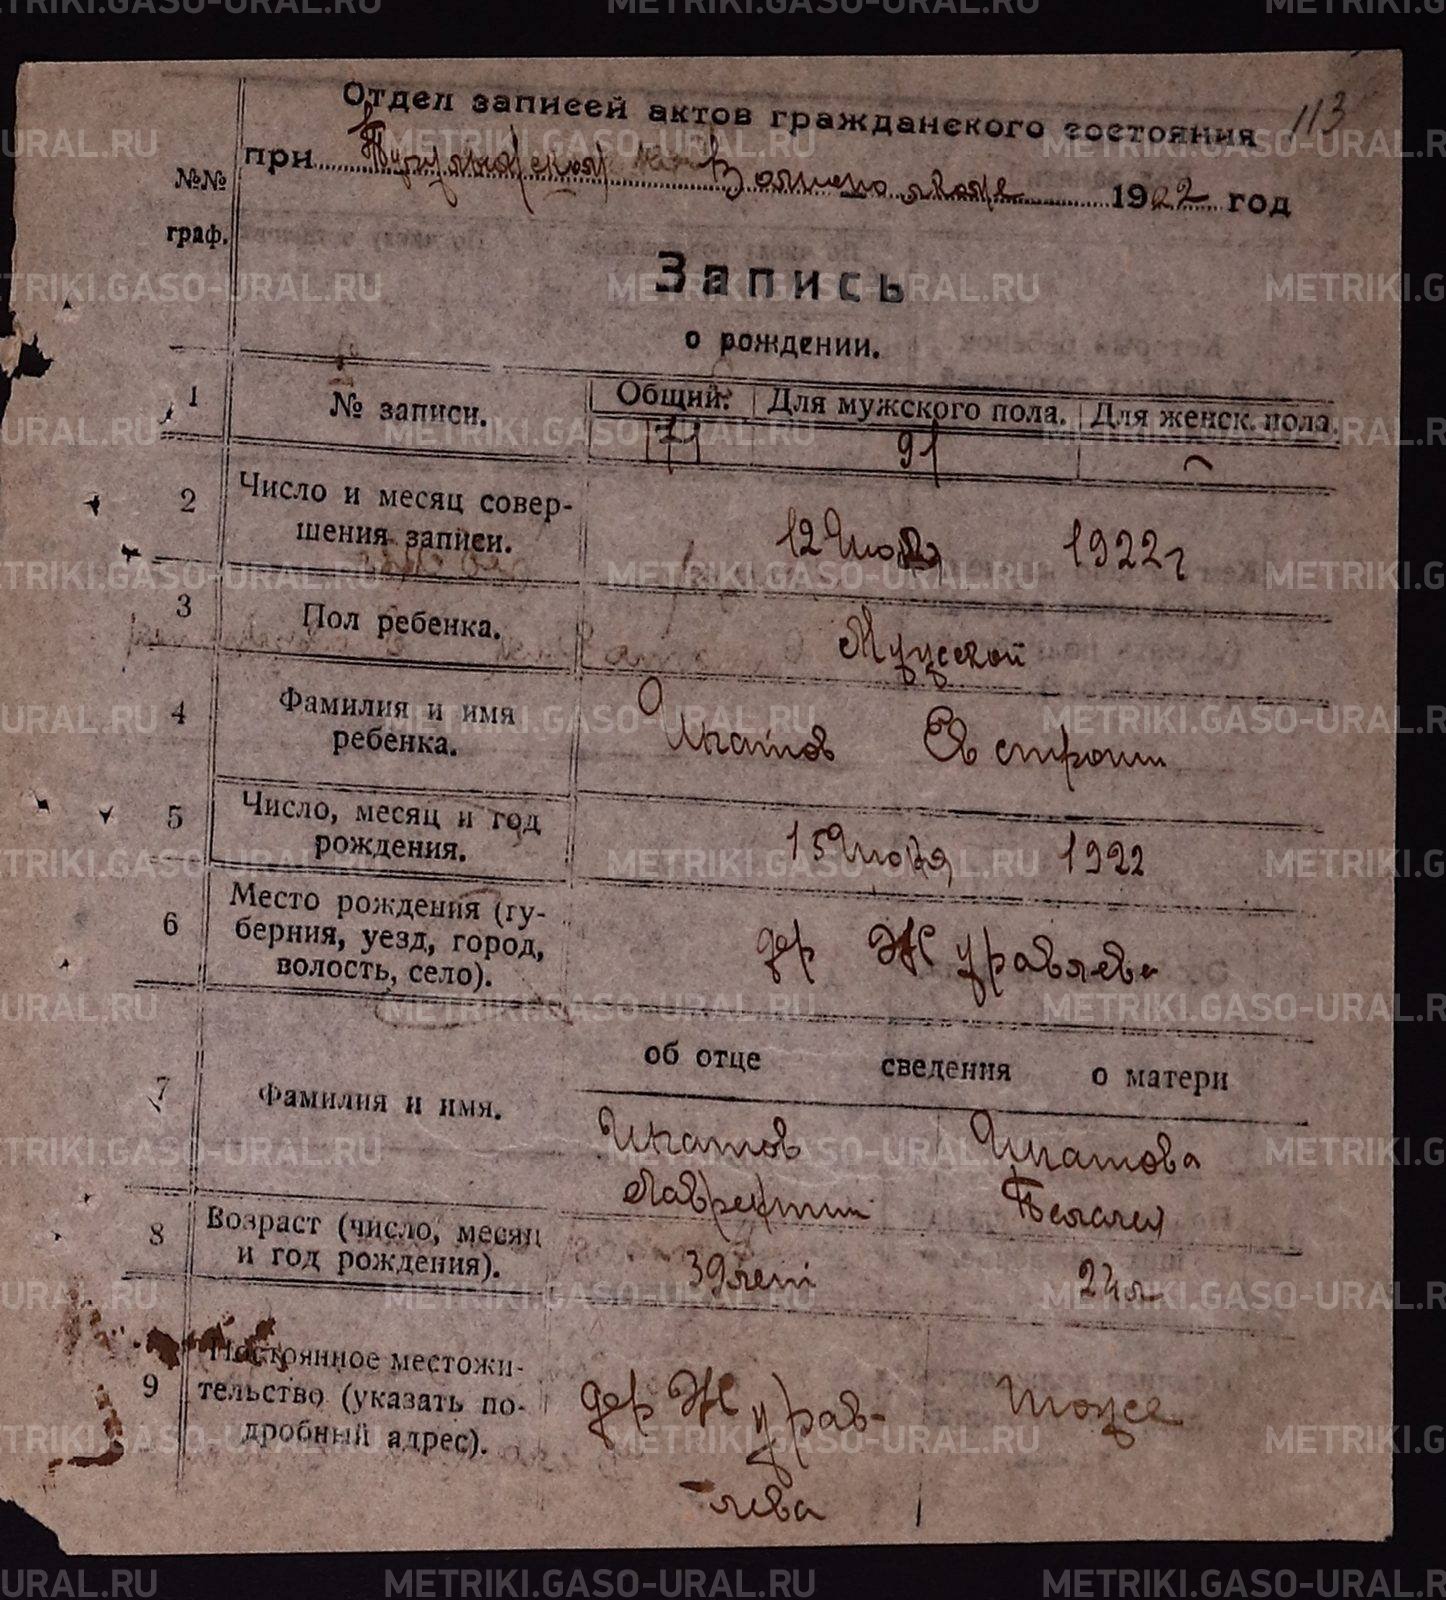 113
Отдел записей актов гражданского состояния
при Волисполкоме 1922 год
№№
граф.
Запись
о рождении.
1 № записи. Общий. Для мужского пола. Для женск. пола.
171 91 —
2 Число и месяц совер-
шения записи. 12 Июля 1922 г
3 Пол ребенка. Мужской
4 Фамилия и имя
ребенка. Ипатов Евстрат
5 Число, месяц и год
рождения. 15 Июня 1922
6 Место рождения (гу-
берния, уезд, город,
волость, село). дер Журавлева
об отце сведения о матери
7 Фамилия и имя. Ипатов Ипатова
Лаврентии Пелагея
8 Возраст (число, месяц
и год рождения). 39 лет 24 л
9 Постоянное местожи-
тельство (указать по-
дробный адрес). дер Журав- тоже
лева
METRIKI.GASO-URAL.RU